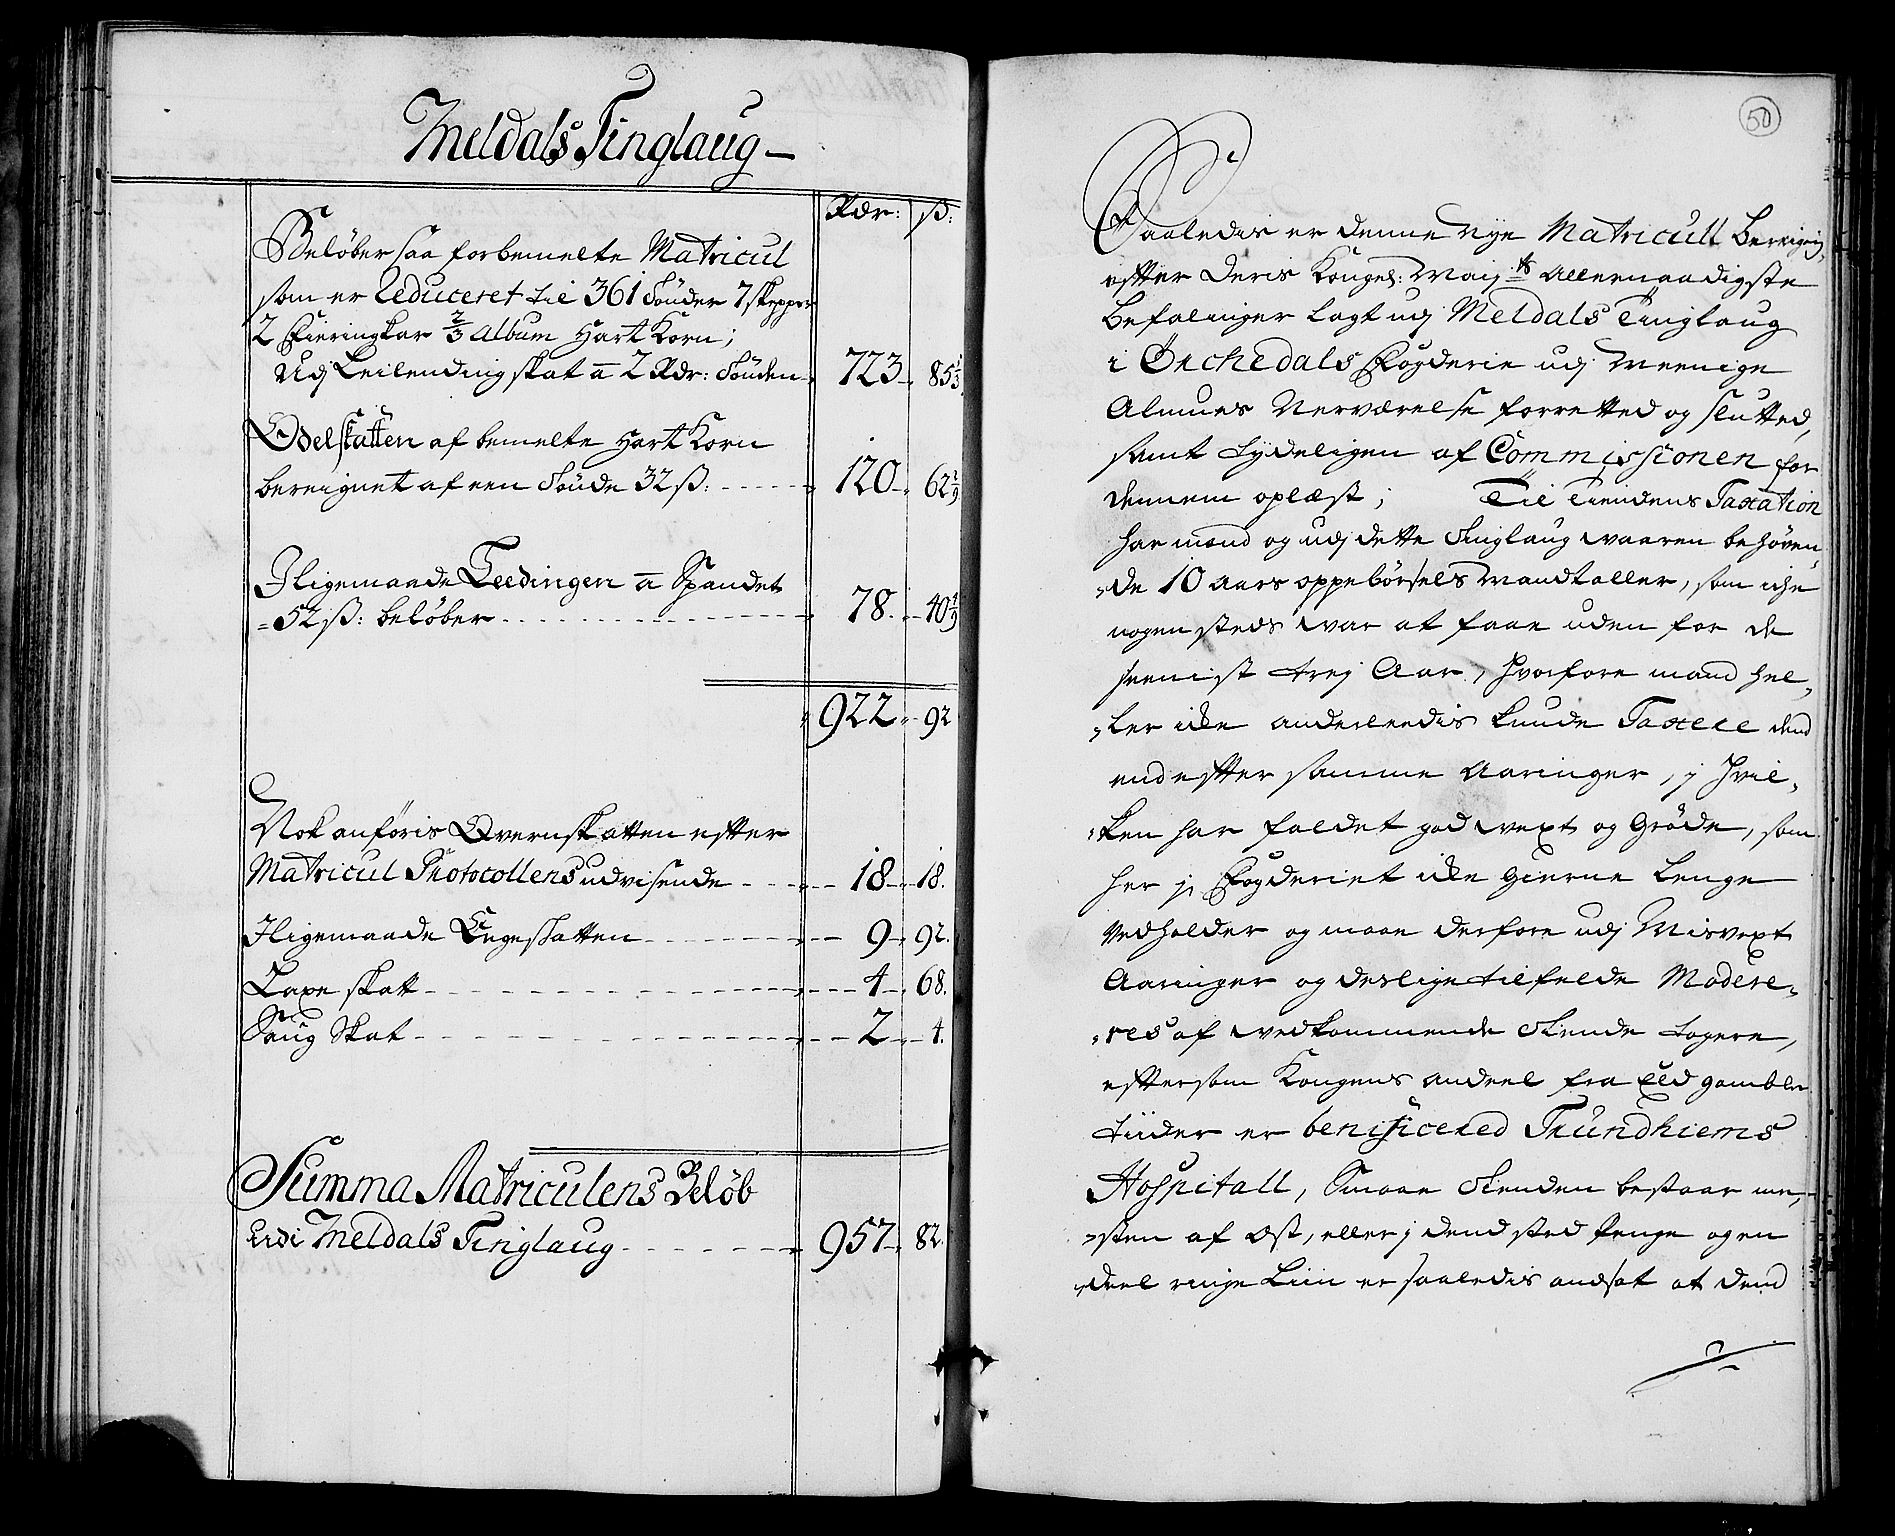 Meldals Tinglaug
Rdr: ß:
Beløber saa forbemelte Matricul
som er Reduceret til 361 Tønder 7 skepper
2 Fieringkar 2/3 Album Hart Korn;
Udj Leilending skat a 2 Rdr: Tønden 723 85 1/3
Odelskatten af bemelte Hart Korn
beregnet af een Tønde 32 ß: 120 62 2/9
Iligemaade Leedingen a Spandet
52 ß: beløber 78 40 4/9
922 92
Nok anføris Qvernskatten efter
Matricul Protocollens udvisende 18 18
Iligemaade Engeskatten 9 92
Laxe skatt 4 68
Saug Skat 2 4
Summa Matriculens Beløb
udi Meldals Tinglaug 957 82
50
Saaledis er denne Nye Matricull
efter Deris Kongel: Mayts Allernaadigste
Befalinger lagt udj Meldals Tinglaug
i Orchedals Fogderie udj Meenige
Almues Nerværelse forretted og slutted,
samt tydeligen af Commissionen for
dennem oplæst; Til Tiendens Taxation
har mand og udj dette Tinglaug waaren behøven
de 10 Aars oppebørsels Mandtaller, som iche
nogen steds war at faae uden for de
seenist trej Aar, hvorfore mand hel
ler ikke anderleedis kunde Taxere dend
end efter samme Aaringer, j hvil
ken har faldet god wext og Grøde, som
her j Fogderiet ikke gierne lenge
Vedholder og maae derfore udj Misvext
Aaringer og deslige tilfelde Modere
res af wedkommende Tiende tagere,
eftersom Kongens andeel fra Eld gamble
tiider er benificered Trundhiems
Hospitall, Smaae Tienden bestaar me
sten af Ost, eller j dend sted Penge og en
deel ringe Liin er saaledis andsat at dend